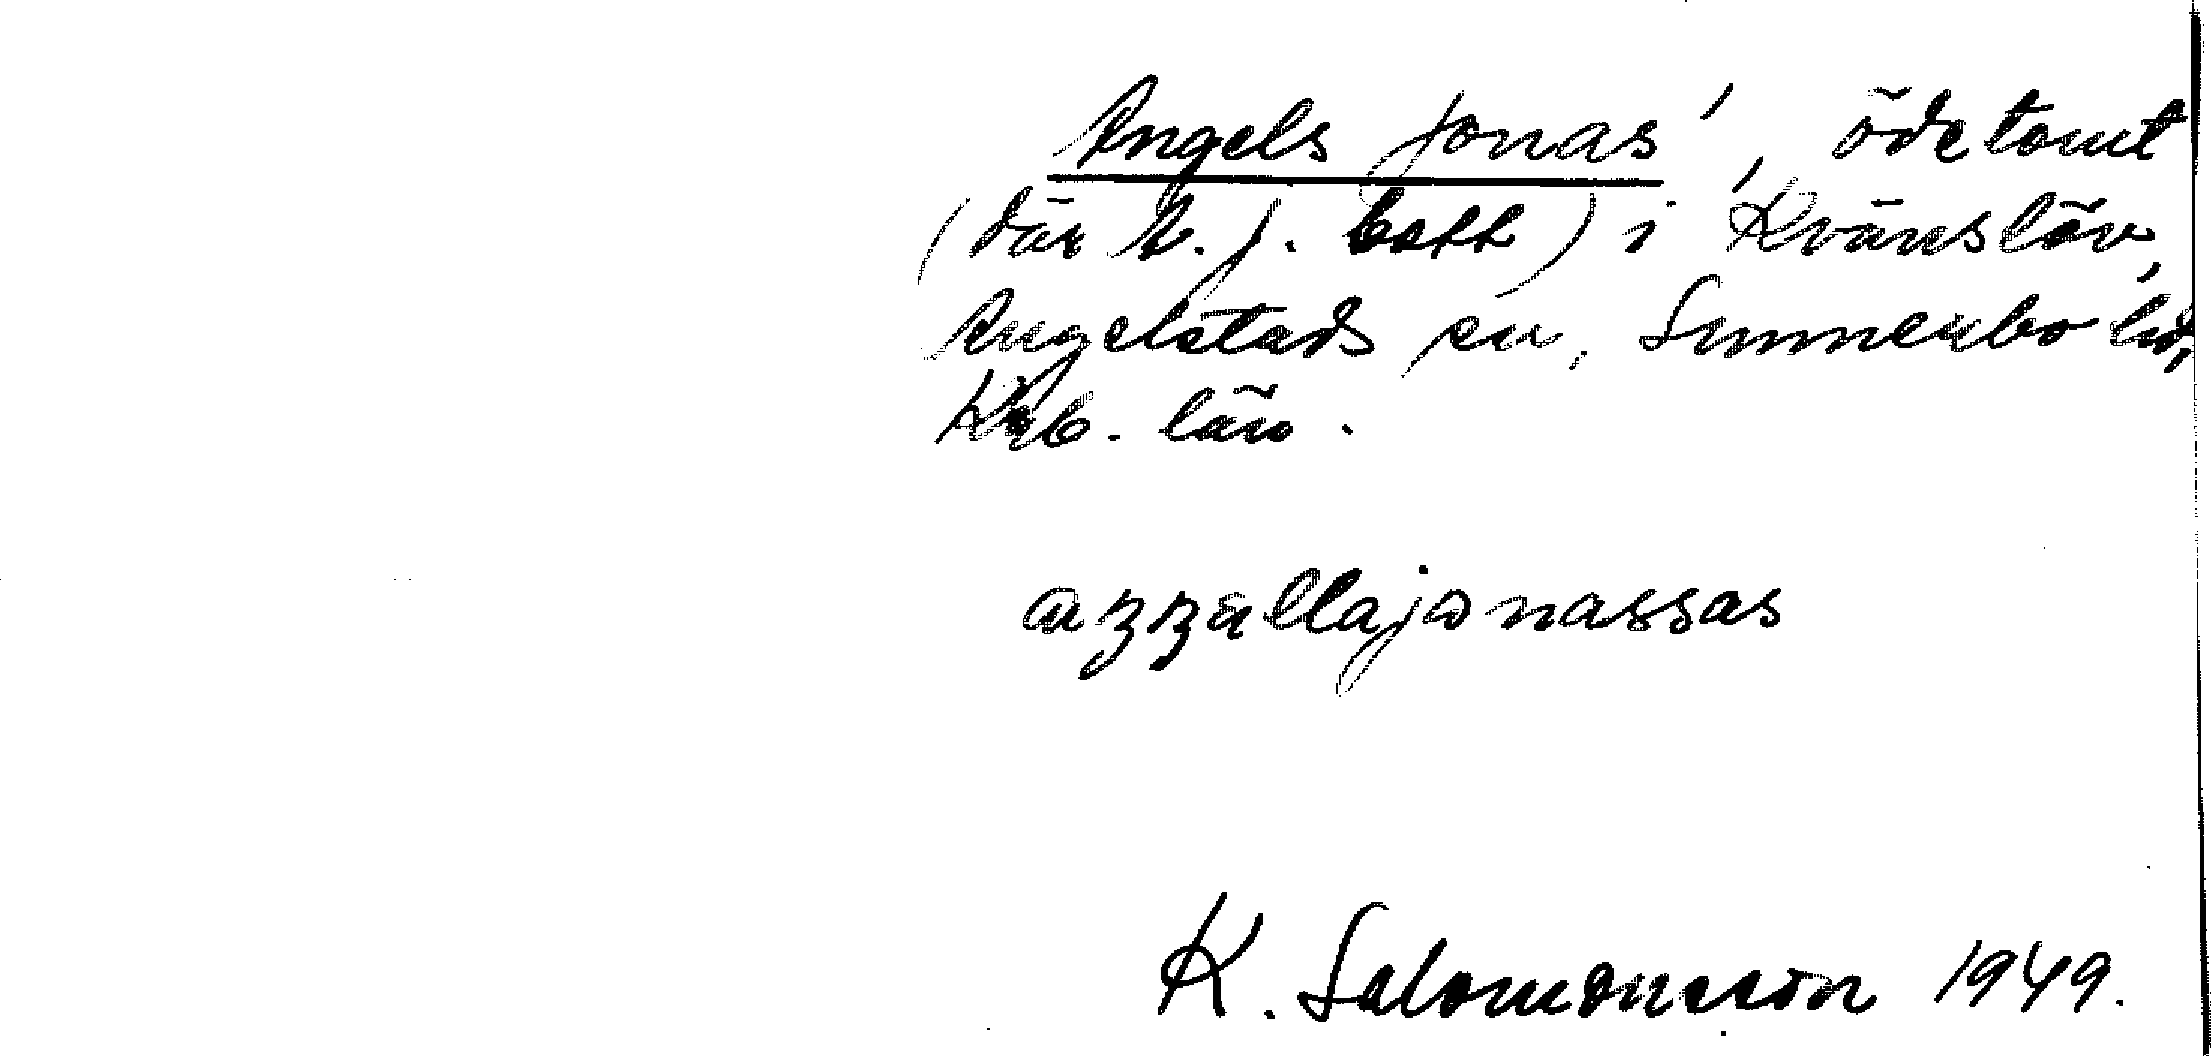 Angels Jonas', ödetomt
(där A. J. bott) i Kvänslöv,
Angelstads sn, Sunnerbo hd,
Krb. län.
azzällajonassas
K. Salomonsson 1949.